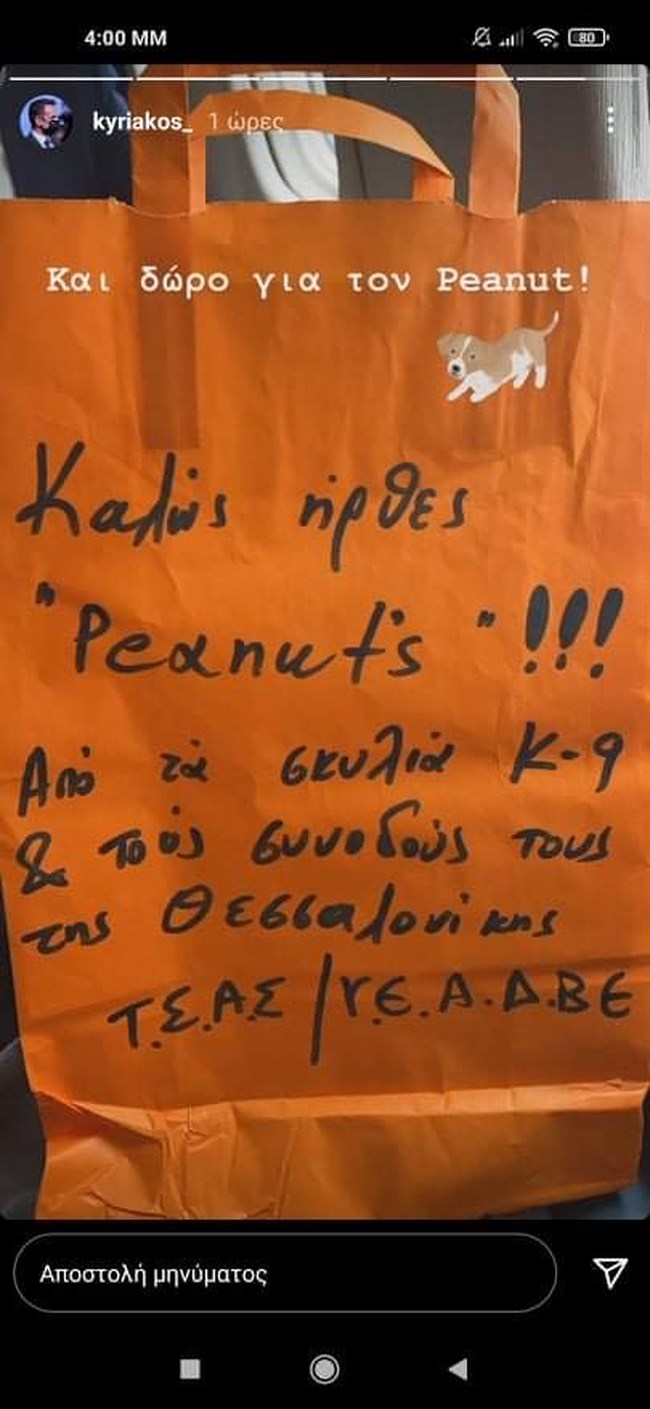 4:00 MM
80
kyriakos_ 1 ώρες
Και δώρο για τον Peanut!
Καλώς ήρθες
"Peanut's"!!!
Από τά σκυλιά K-9
& τούς συνοδούς τους
της Θεσσαλονίκης
Τ.Σ.Α.Σ/Υ.Ε.Α.Δ.ΒΕ
Αποστολή μηνύματος